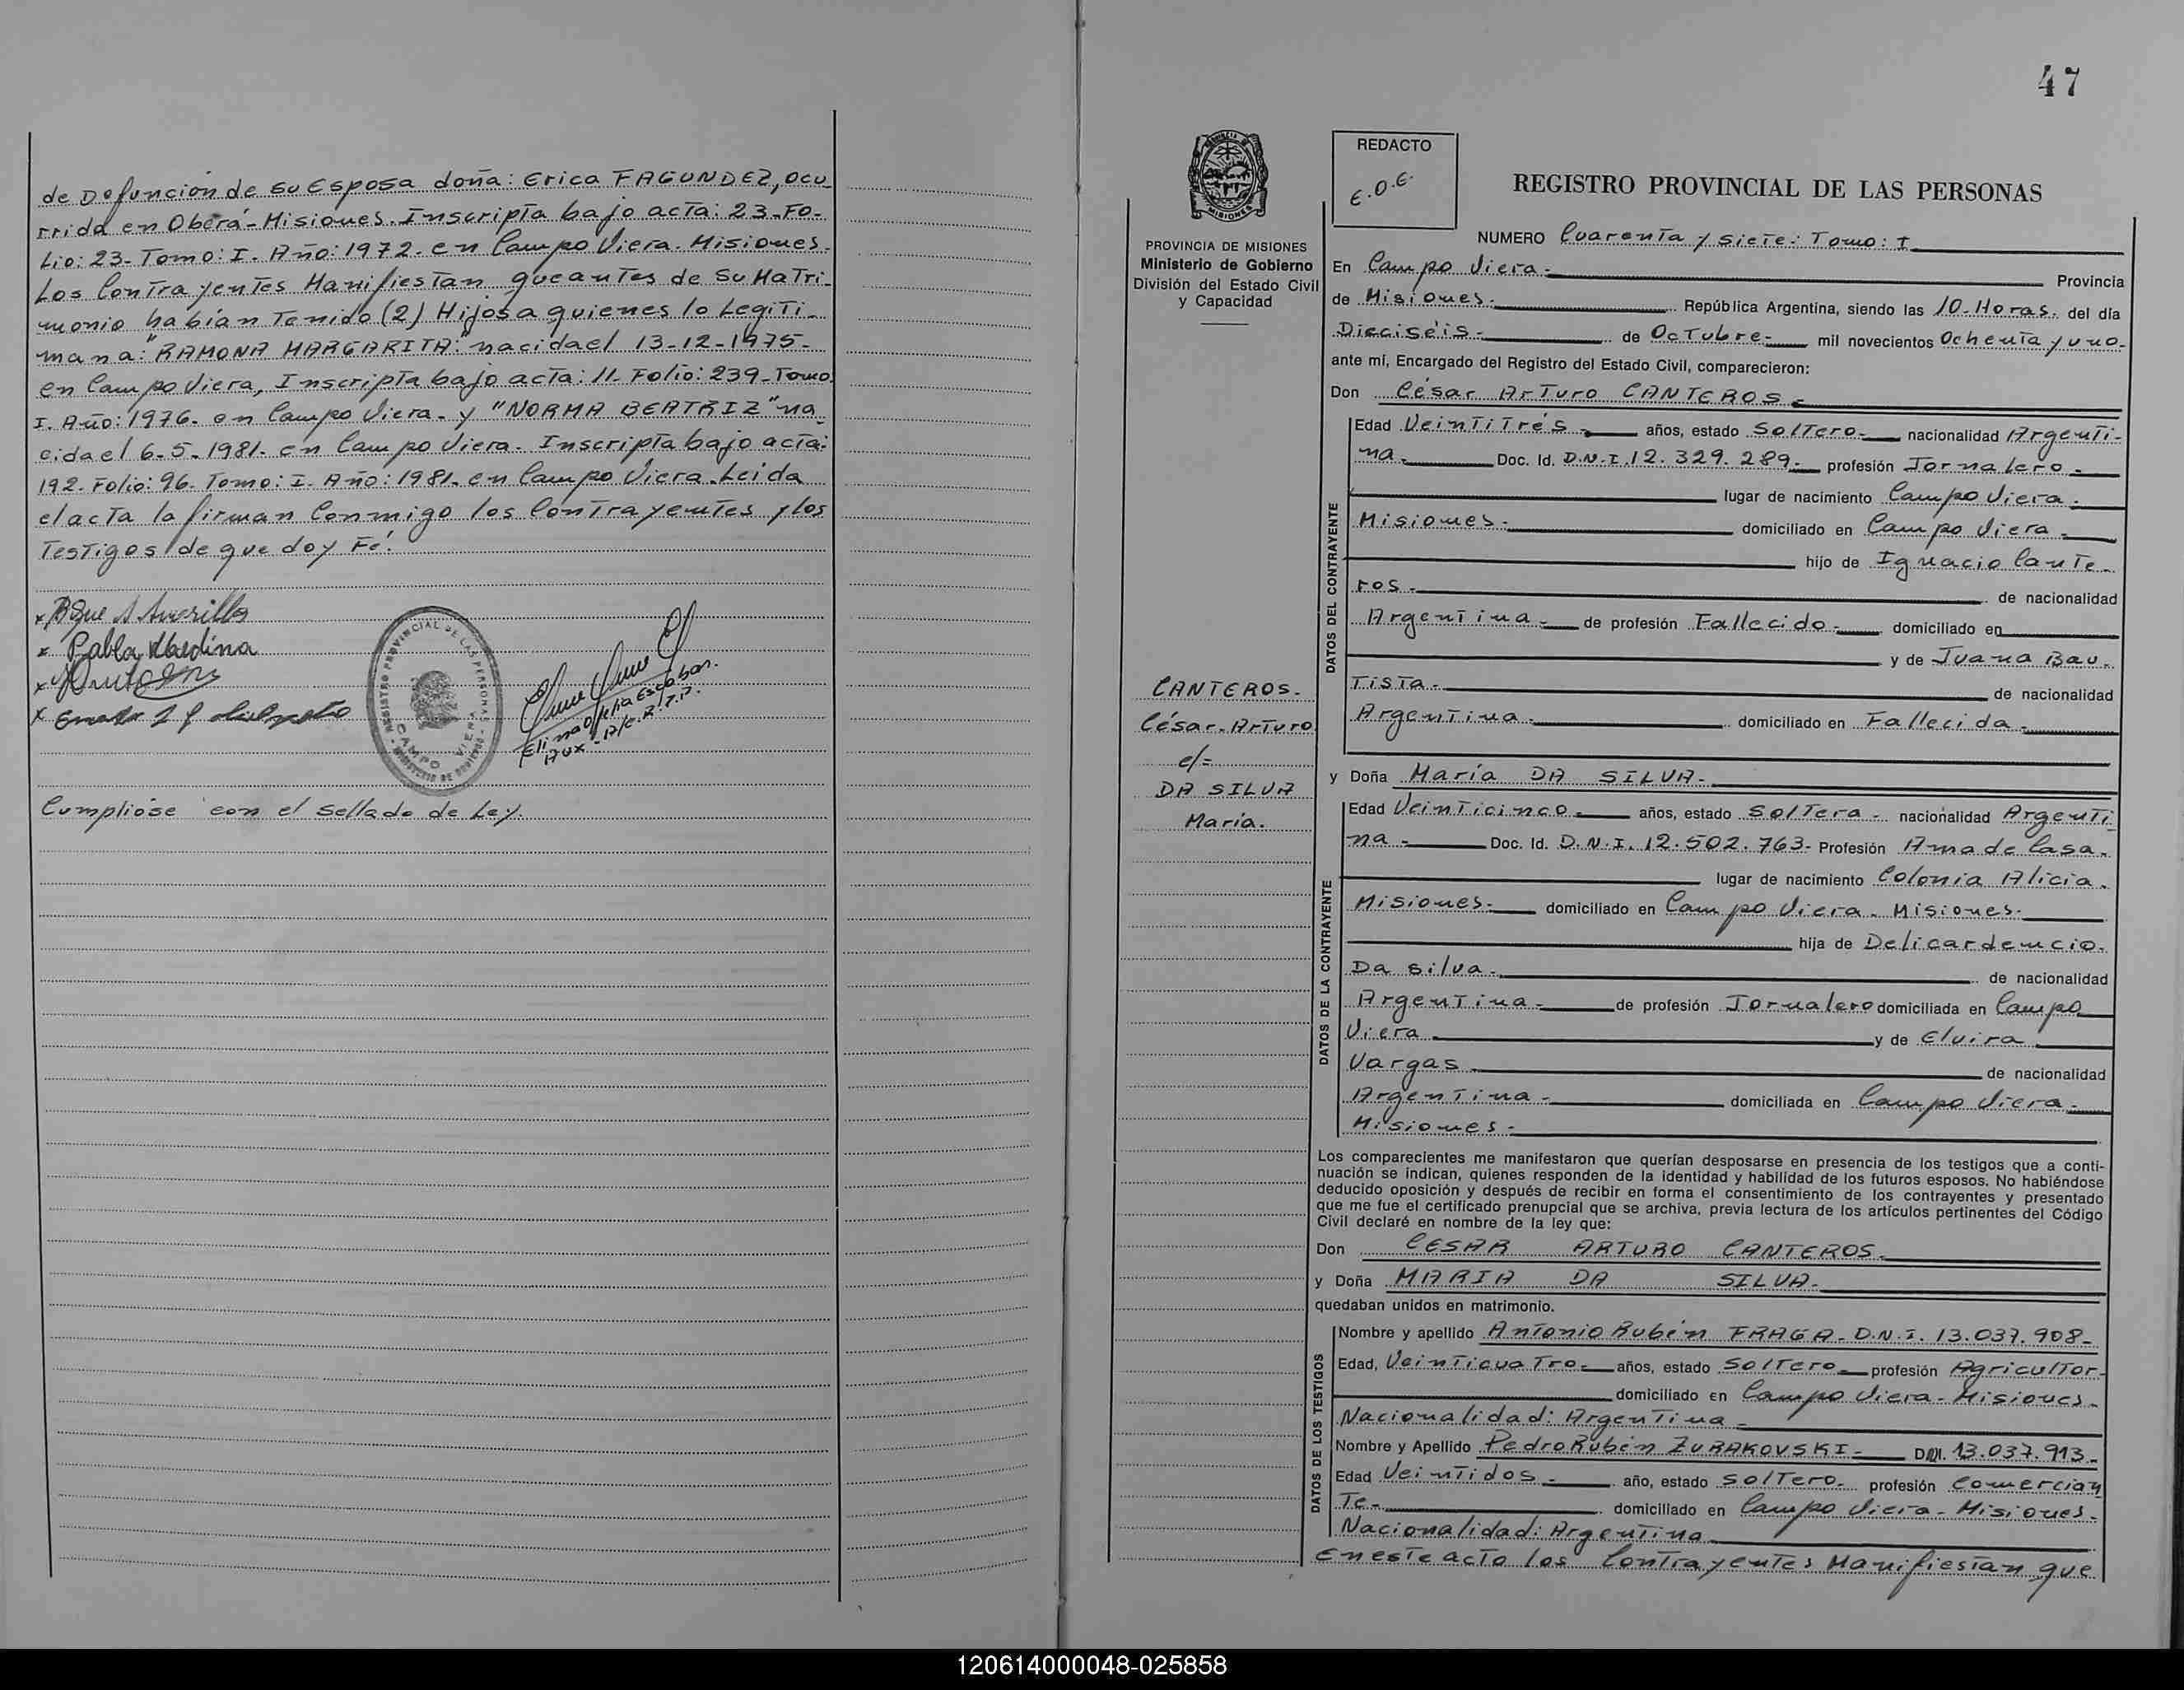 de Defunción de su Esposa doña: Erica FAGUNDEZ, ocu
rrida en Oberá-Misiones. Inscripta bajo acta: 23-Fo-
lio: 23-Tomo: I. Año: 1972. en Campo Viera. Misiones.
Los Contrayentes Manifiestan que antes de su Matri-
monio habían Tenido (2) Hijos a quienes lo Legiti-
man a: "RAMONA MARGARITA: nacida el 13-12-1975-
en Campo Viera, Inscripta bajo acta: 11- Folio: 239-Tomo
I. Año: 1976. en Campo Viera- y "NORMA BEATRIZ" na
cida el 6-5-1981- en Campo Viera- Inscripta bajo acta:
192. Folio: 96. Tomo: I. Año: 1981. en Campo Viera. Leida
el acta la firman Conmigo los Contrayentes y los
Testigos de que doy Fé.
x
x Pabla Medina
x
x
REGISTRO PROVINCIAL DE LAS PERSONAS
CAMPO VIERA
MINISTERIO DE GOBIERNO
Elina Ofelia Escobar.
Aux - A/C. R.P.P.
Cumplióse con el Sellado de Ley.
47
PROVINCIA DE MISIONES
Ministerio de Gobierno
División del Estado Civil
y Capacidad
CANTEROS.
César-Arturo
c/=
DA SILVA
María.
REDACTO
E.O.E.
REGISTRO PROVINCIAL DE LAS PERSONAS
NUMERO Cuarenta y siete: Tomo: I
En Campo Viera- Provincia
de Misiones- República Argentina, siendo las 10-Horas. del día
Dieciséis- de Octubre- mil novecientos Ochenta y uno-
ante mí, Encargado del Registro del Estado Civil, comparecieron:
Don César Arturo CANTEROS-
DATOS DEL CONTRAYENTE
Edad Veintitrés- años, estado Soltero- nacionalidad Argenti-
na- Doc. Id. D.N.I. 12.329.289- profesión Jornalero-
lugar de nacimiento Campo Viera-
Misiones- domiciliado en Campo Viera-
hijo de Ignacio Cante-
ros- de nacionalidad
Argentina- de profesión Fallecido- domiciliado en
y de Juana Bau-
tista- de nacionalidad
Argentina- domiciliado en Fallecida-
y Doña María DA SILVA-
DATOS DE LA CONTRAYENTE
Edad Veinticinco- años, estado Soltera- nacionalidad Argenti
na- Doc. Id. D.N.I. 12.502.763- Profesión Ama de Casa-
lugar de nacimiento Colonia Alicia-
Misiones- domiciliado en Campo Viera. Misiones-
hija de Delicardencio-
Da silva- de nacionalidad
Argentina- de profesión Jornalero domiciliada en Campo
Viera y de Elvira
Vargas de nacionalidad
Argentina- domiciliada en Campo Viera-
Misiones-
Los comparecientes me manifestaron que querían desposarse en presencia de los testigos que a conti-
nuación se indican, quienes responden de la identidad y habilidad de los futuros esposos. No habiéndose
deducido oposición y después de recibir en forma el consentimiento de los contrayentes y presentado
que me fue el certificado prenupcial que se archiva, previa lectura de los artículos pertinentes del Código
Civil declaré en nombre de la ley que:
Don CESAR ARTURO CANTEROS-
y Doña MARIA DA SILVA-
quedaban unidos en matrimonio.
DATOS DE LOS TESTIGOS
Nombre y apellido Antonio Rubén FRAGA- D.N.I. 13.037.908-
Edad, Veinticuatro- años, estado Soltero- profesión Agricultor-
domiciliado en Campo Viera-Misiones-
Nacionalidad: Argentina-
Nombre y Apellido Pedro Rubén ZURAKOVSKI- DNI. 13.037.913-
Edad Veintidos- año, estado soltero- profesión Comercian
te- domiciliado en Campo Viera- Misiones-
Nacionalidad: Argentina
En este acto los Contrayentes Manifiestan que
120614000048-025858